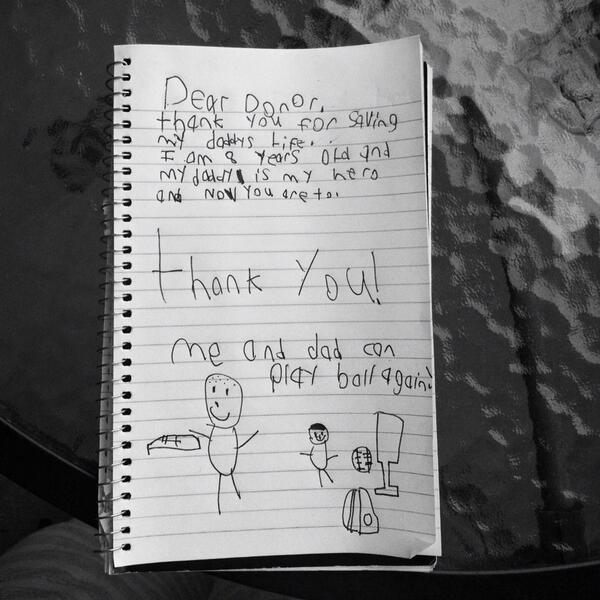 Dear Donor,
thank you for saving
my daddys Life.
I am 8 years old and
my daddy is my hero
and now you are to.
thank you!
me and dad can
play ball again!